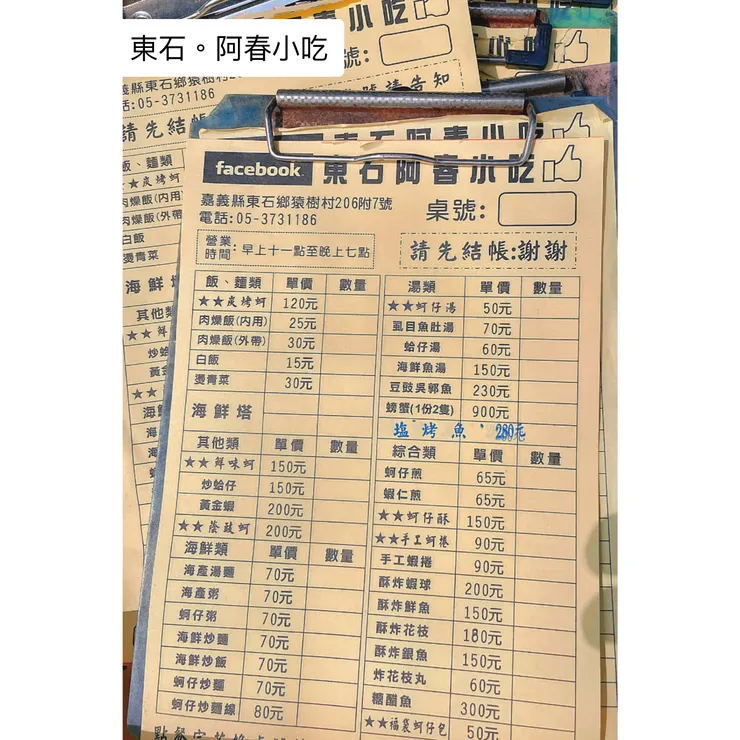 東石。阿春小吃
嘉義縣東石鄉猿樹村2
話:05-3731186
號:
號請告知
請先結帳
飯、麵類
★★炭烤蚵
肉燥飯(內用)
肉燥飯(外帶)
白飯
燙青菜
海鮮塔
其他類
facebook 東石阿春小吃
嘉義縣東石鄉猿樹村206附7號
電話:05-3731186
桌號:
營業時間: 早上十一點至晚上七點
請先結帳:謝謝
飯、麵類 單價 數量
★★炭烤蚵 120元
肉燥飯(內用) 25元
肉燥飯(外帶) 30元
白飯 15元
燙青菜 30元
海鮮塔
其他類 單價 數量
★★鮮味蚵 150元
炒蛤仔 150元
黃金蝦 200元
★★蔭豉蚵 200元
海鮮類 單價 數量
海產湯麵 70元
海產粥 70元
蚵仔粥 70元
海鮮炒麵 70元
海鮮炒飯 70元
蚵仔炒麵 70元
蚵仔炒麵線 80元
湯類 單價 數量
★★蚵仔湯 50元
虱目魚肚湯 70元
蛤仔湯 60元
海鮮魚湯 150元
豆豉吳郭魚 230元
螃蟹(1份2隻) 900元
塩烤魚 280元
綜合類 單價 數量
蚵仔煎 65元
蝦仁煎 65元
★★蚵仔酥 150元
★★手工蚵捲 90元
手工蝦捲 90元
酥炸蝦球 200元
酥炸鮮魚 150元
酥炸花枝 180元
酥炸銀魚 150元
炸花枝丸 60元
糖醋魚 300元
★★福袋蚵仔包 50元